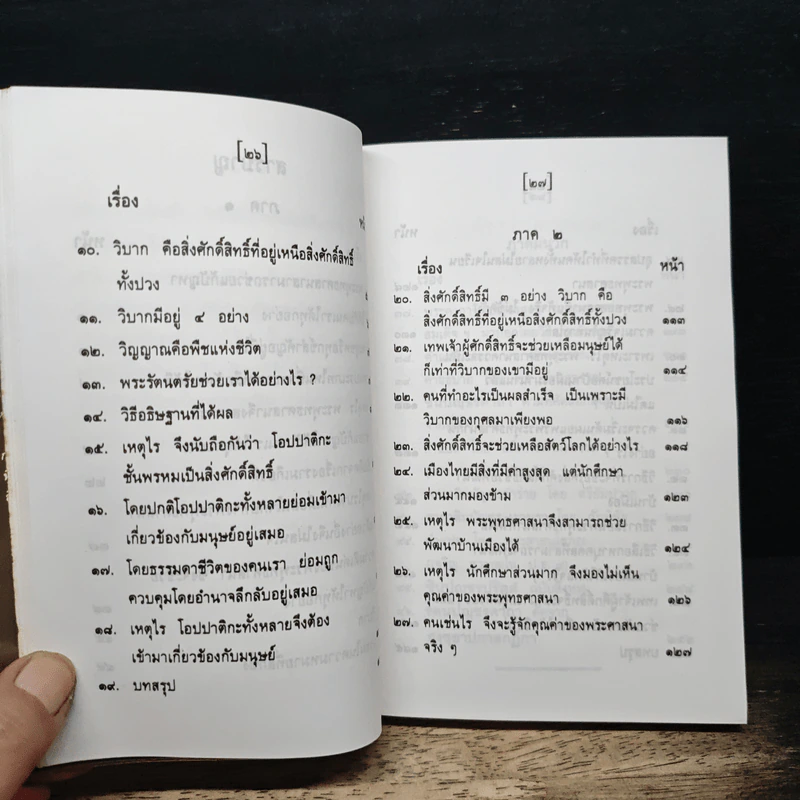 [๒๖]
เรื่อง
๑๐. วิบาก คือสิ่งศักดิ์สิทธิ์ที่อยู่เหนือสิ่งศักดิ์สิทธิ์
ทั้งปวง
๑๑. วิบากมีอยู่ ๔ อย่าง
๑๒. วิญญาณคือพืชแห่งชีวิต
๑๓. พระรัตนตรัยช่วยเราได้อย่างไร ?
๑๔. วิธีอธิษฐานที่ได้ผล
๑๕. เหตุไร จึงนับถือกันว่า โอปปาติกะ
ชั้นพรหมเป็นสิ่งศักดิ์สิทธิ์
๑๖. โดยปกติโอปปาติกะทั้งหลายย่อมเข้ามา
เกี่ยวข้องกับมนุษย์อยู่เสมอ
๑๗. โดยธรรมดาชีวิตของคนเรา ย่อมถูก
ควบคุมโดยอำนาจลึกลับอยู่เสมอ
๑๘. เหตุไร โอปปาติกะทั้งหลายจึงต้อง
เข้ามาเกี่ยวข้องกับมนุษย์
๑๙. บทสรุป
[๒๗]
ภาค ๒
เรื่อง หน้า
๒๐. สิ่งศักดิ์สิทธิ์มี ๓ อย่าง วิบาก คือ
สิ่งศักดิ์สิทธิ์ที่อยู่เหนือสิ่งศักดิ์สิทธิ์ทั้งปวง ๑๑๓
๒๑. เทพเจ้าผู้ศักดิ์สิทธิ์จะช่วยเหลือมนุษย์ได้
ก็เท่าที่วิบากของเขามีอยู่ ๑๑๔
๒๒. คนที่ทำอะไรเป็นผลสำเร็จ เป็นเพราะมี
วิบากของกุศลมาเพียงพอ ๑๑๖
๒๓. สิ่งศักดิ์สิทธิ์จะช่วยเหลือสัตว์โลกได้อย่างไร ๑๑๘
๒๔. เมืองไทยมีสิ่งที่มีค่าสูงสุด แต่นักศึกษา
ส่วนมากมองข้าม ๑๒๓
๒๕. เหตุไร พระพุทธศาสนาจึงสามารถช่วย
พัฒนาบ้านเมืองได้ ๑๒๔
๒๖. เหตุไร นักศึกษาส่วนมาก จึงมองไม่เห็น
คุณค่าของพระพุทธศาสนา ๑๒๖
๒๗. คนเช่นไร จึงจะรู้จักคุณค่าของพระศาสนา
จริง ๆ ๑๒๗